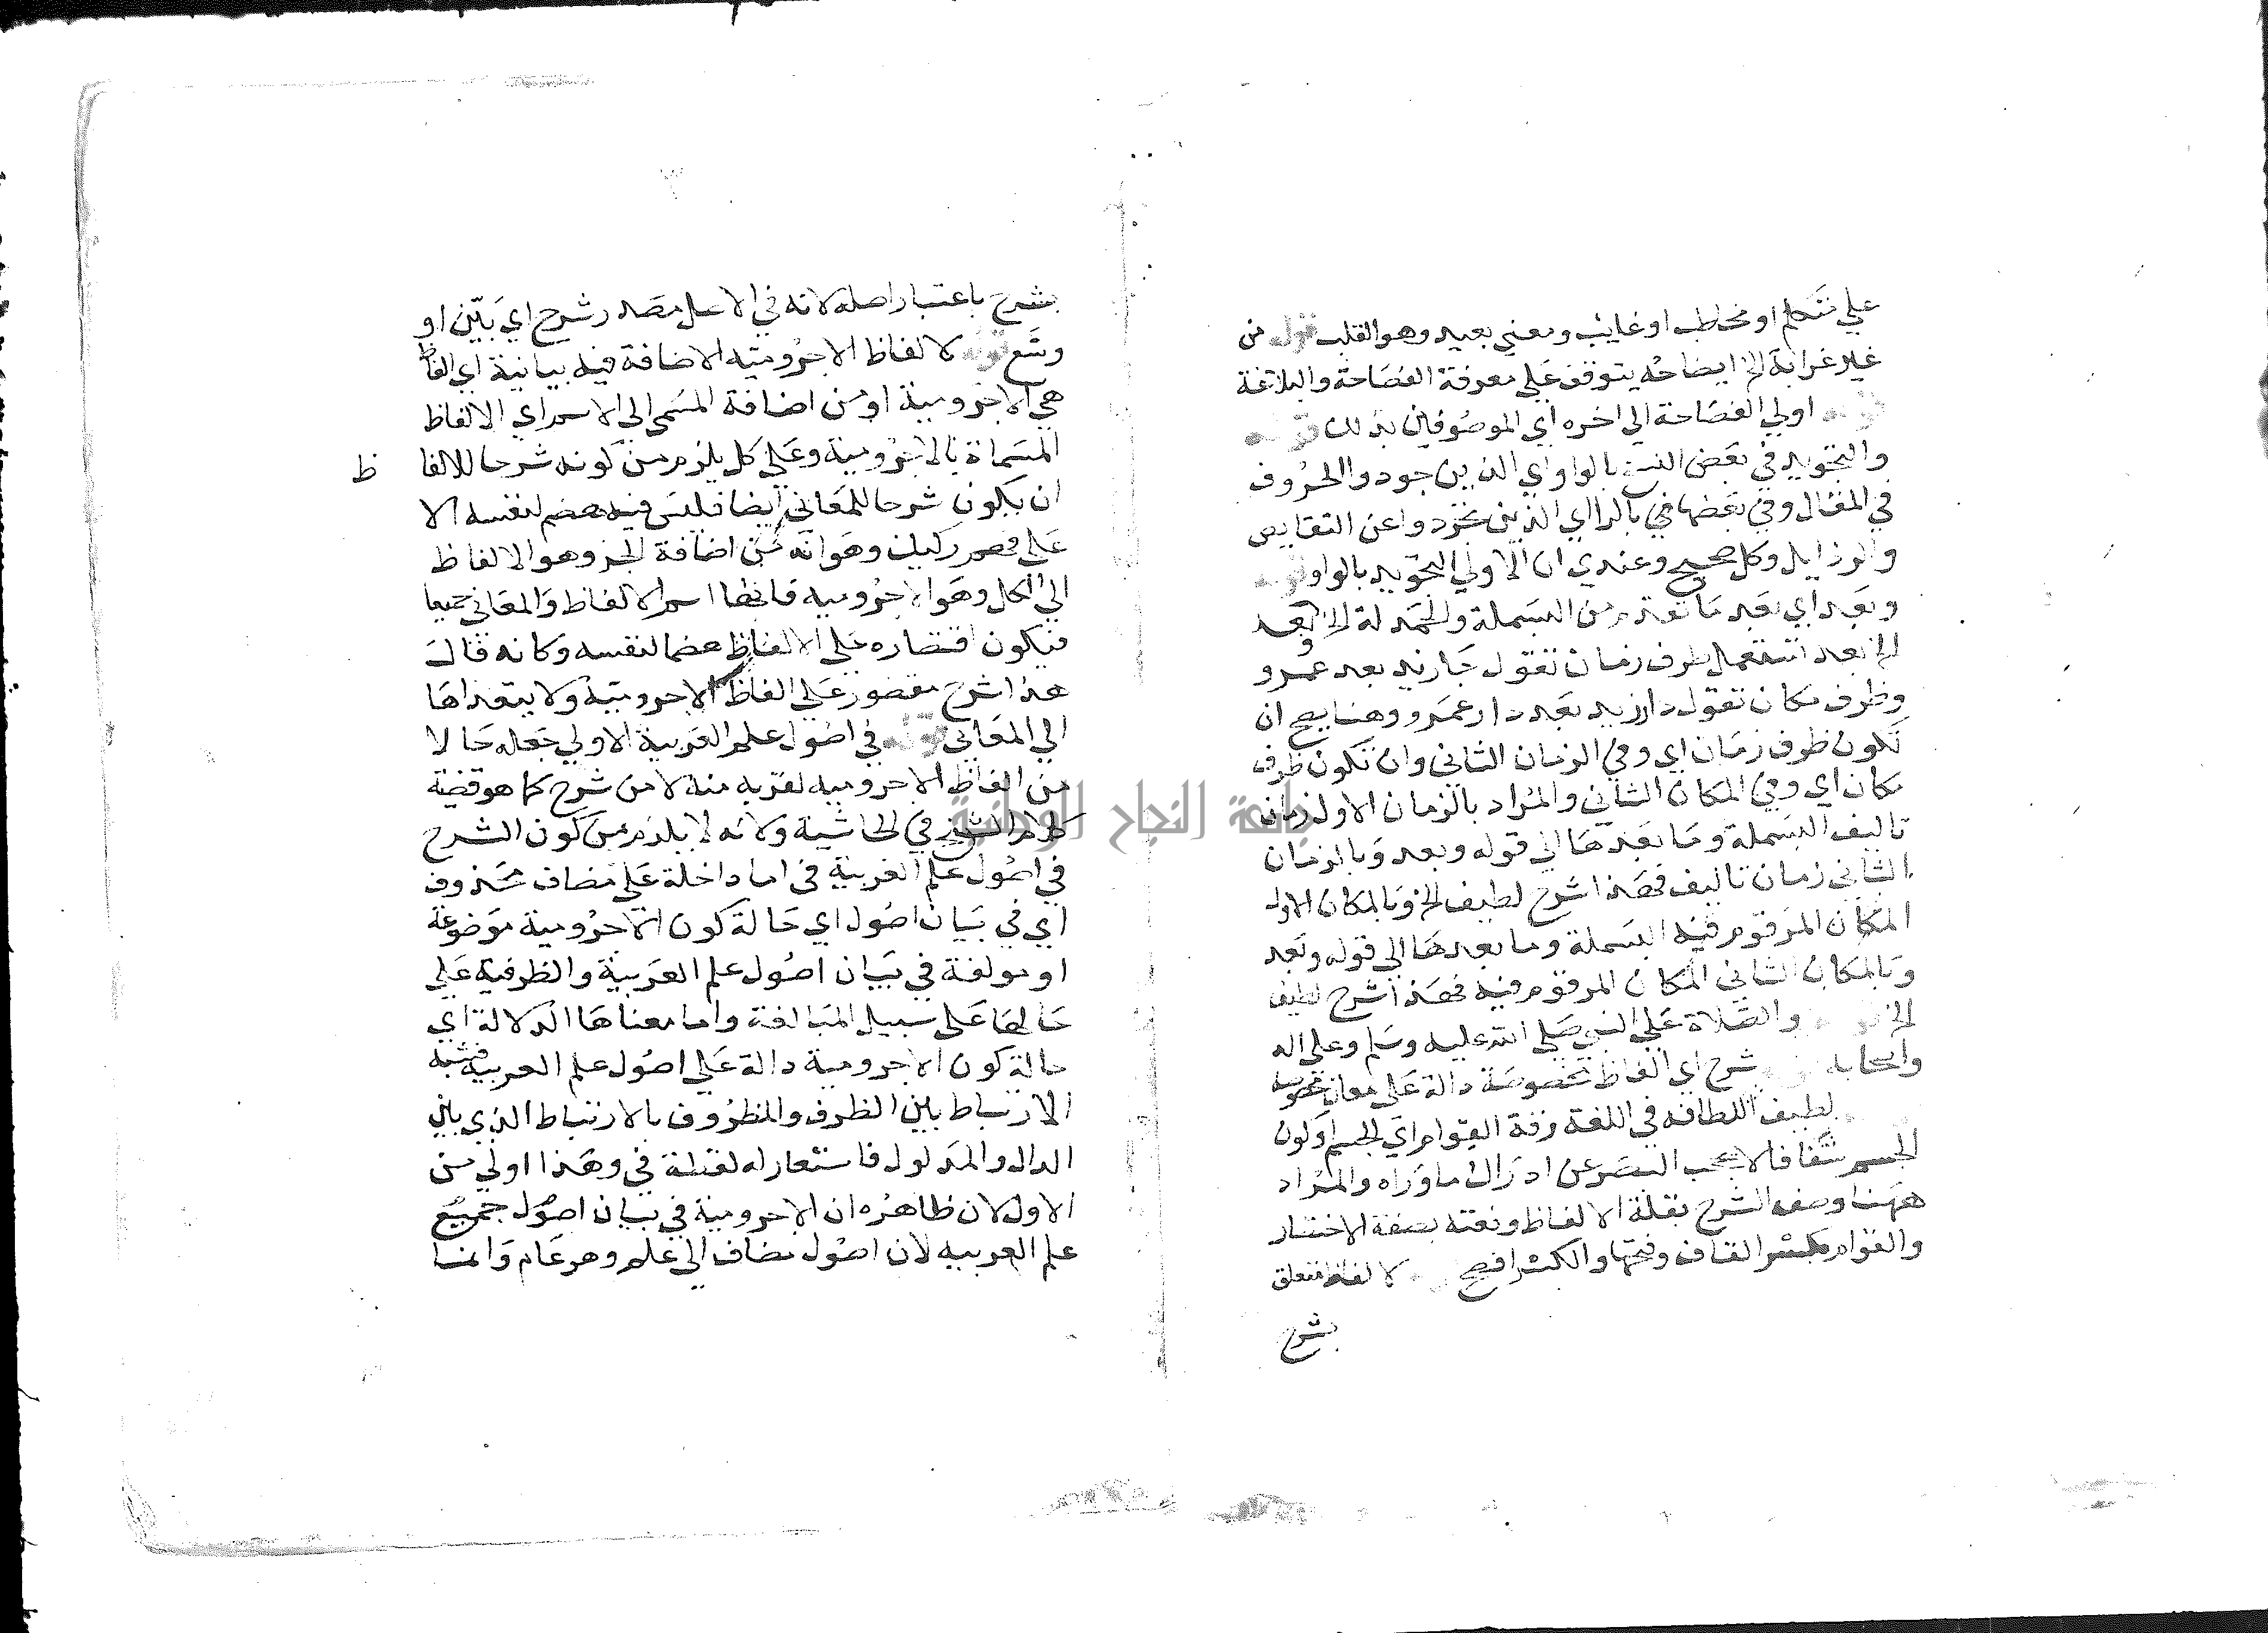 علي متكلم او مخاطب او غايب ومعني بعيد وهو القلب قوله من
غير غرابة الخ ايضاحه يتوقف علي معرفة الفصاحة والبلاغة
قوله اولي الفصاحة الي اخره اي الموصوفين بذلك قوله
والتجويد في بعض النسخ بالواو اي الذين جودوا الحروف
في المقال وفي بعضها في بالرا اي الذين تجردوا عن النقايص
والرذايل وكل صحيح وعندي ان الاولي التجويد بالواو قوله
وبعد اي بعد ما تقدم من البسملة والحمدلة الخ وبعد
الخ بعد تستعمل ظرف زمان تقول جا زيد بعد عمرو
وظرف مكان تقول دار زيد بعد دار عمرو وهنا يصح ان
تكون ظرف زمان اي وفي الزمان الثاني وان تكون ظرف
مكان اي وفي المكان الثاني والمراد بالزمان الاول زمان
تاليف البسملة وما بعدها الي قوله وبعد وبالزمان
الثاني زمان تاليف فهذا شرح لطيف الخ وبالمكان الاول
المكان المرقوم فيه البسملة وما بعدها الي قوله وبعد
وبالمكان الثاني المكان المرقوم فيه فهذا شرح لطيف
الخ والصلاة علي النبي صلي الله عليه وسلم وعلي اله
واصحابه شرح اي الفاظ مخصوصة دالة علي معان مخصوصة
لطيف اللطافه في اللغة رقة القوام اي الجسم او كون
الجسم شفافا لا يحجب البصر عن ادراك ما وراه والمراد
ههنا وصف الشرح بقلة الالفاظ ونعته بصفة الاختصار
والقوام بكسر القاف وفتحها والكسر افصح لالفاظ متعلق
بشرح
بشرح باعتبار اصله لانه في الاصل مصدر شرح اي بين او
وسع قوله لالفاظ الاجرومية الاضافة فيه بيانية اي الفاظ
هي الاجرومية او من اضافة المسمي الي الاسم اي الالفاظ
المسماة بالاجرومية وعلي كل يلزم من كونه شرحا للالفا ظ
ان يكون شرحا للمعاني ايضا فليس فيه هضم لنفسه الا
علي وهو انه من اضافة الجز وهو الالفاظ
الي الكل وهو الاجرومية فانها اسم للالفاظ والمعاني جميعا
فيكون اقتصاره علي الالفاظ هضما لنفسه وكانه قال
هذا شرح مقصور علي الفاظ الاجرومية ولا يتعداها
الي المعاني قوله في اصول علم العربية الاولي جعله حالا
من الفاظ الاجرومية لقربه منه لا من شرح كما هو قضية
كلام الشيخ في الحاشية ولانه لا يلزم من كون الشرح
في اصول علم العربية في اما داخلة علي مضاف محذوف
اي في بيان اصول اي حالة كون الاجرومية موضوعة
او مولفة في بيان اصول علم العربية والظرفية علي
حالها علي سبيل المبالغة واما معناها الدلالة اي
حالة كون الاجرومية دالة علي اصول علم العربية فشبه
الارتباط بين الظرف والمظروف بالارتباط الذي بين
الدال والمدلول فاستعار له لفظة في وهذا اولي من
الاول لان ظاهره ان الاجرومية في بيان اصول جميع
علم العربيه لان اصول مضاف الي علم وهو عام وانما
جامعة النجاح الوطنية